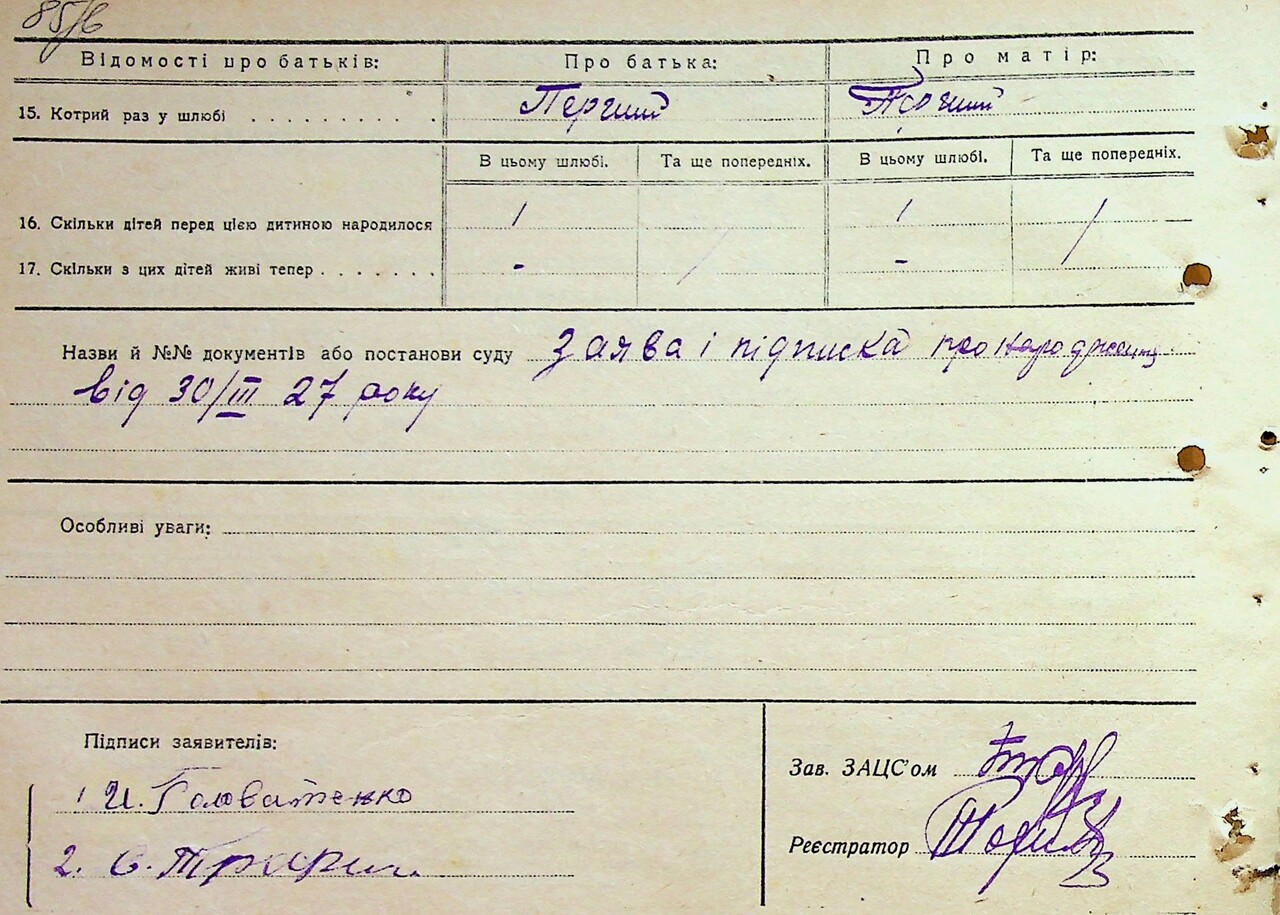 85/6
Відомості про батьків: Про батька: Про матір:
15. Котрий раз у шлюбі . . . . . . . . . . Перший Перший
В цьому шлюбі. Та ще попередніх. В цьому шлюбі. Та ще попередніх.
16. Скільки дітей перед цією дитиною народилося 1 / 1 /
17. Скільки з цих дітей живі тепер . . . . . . . - -
Назви й №№ документів або постанови суду Заява і підписка про народження
від 30/III 27 року
Особливі уваги:
Підписи заявителів:
1 И. Головатенко
2. С.
Зав. ЗАЦС'ом
Реєстратор